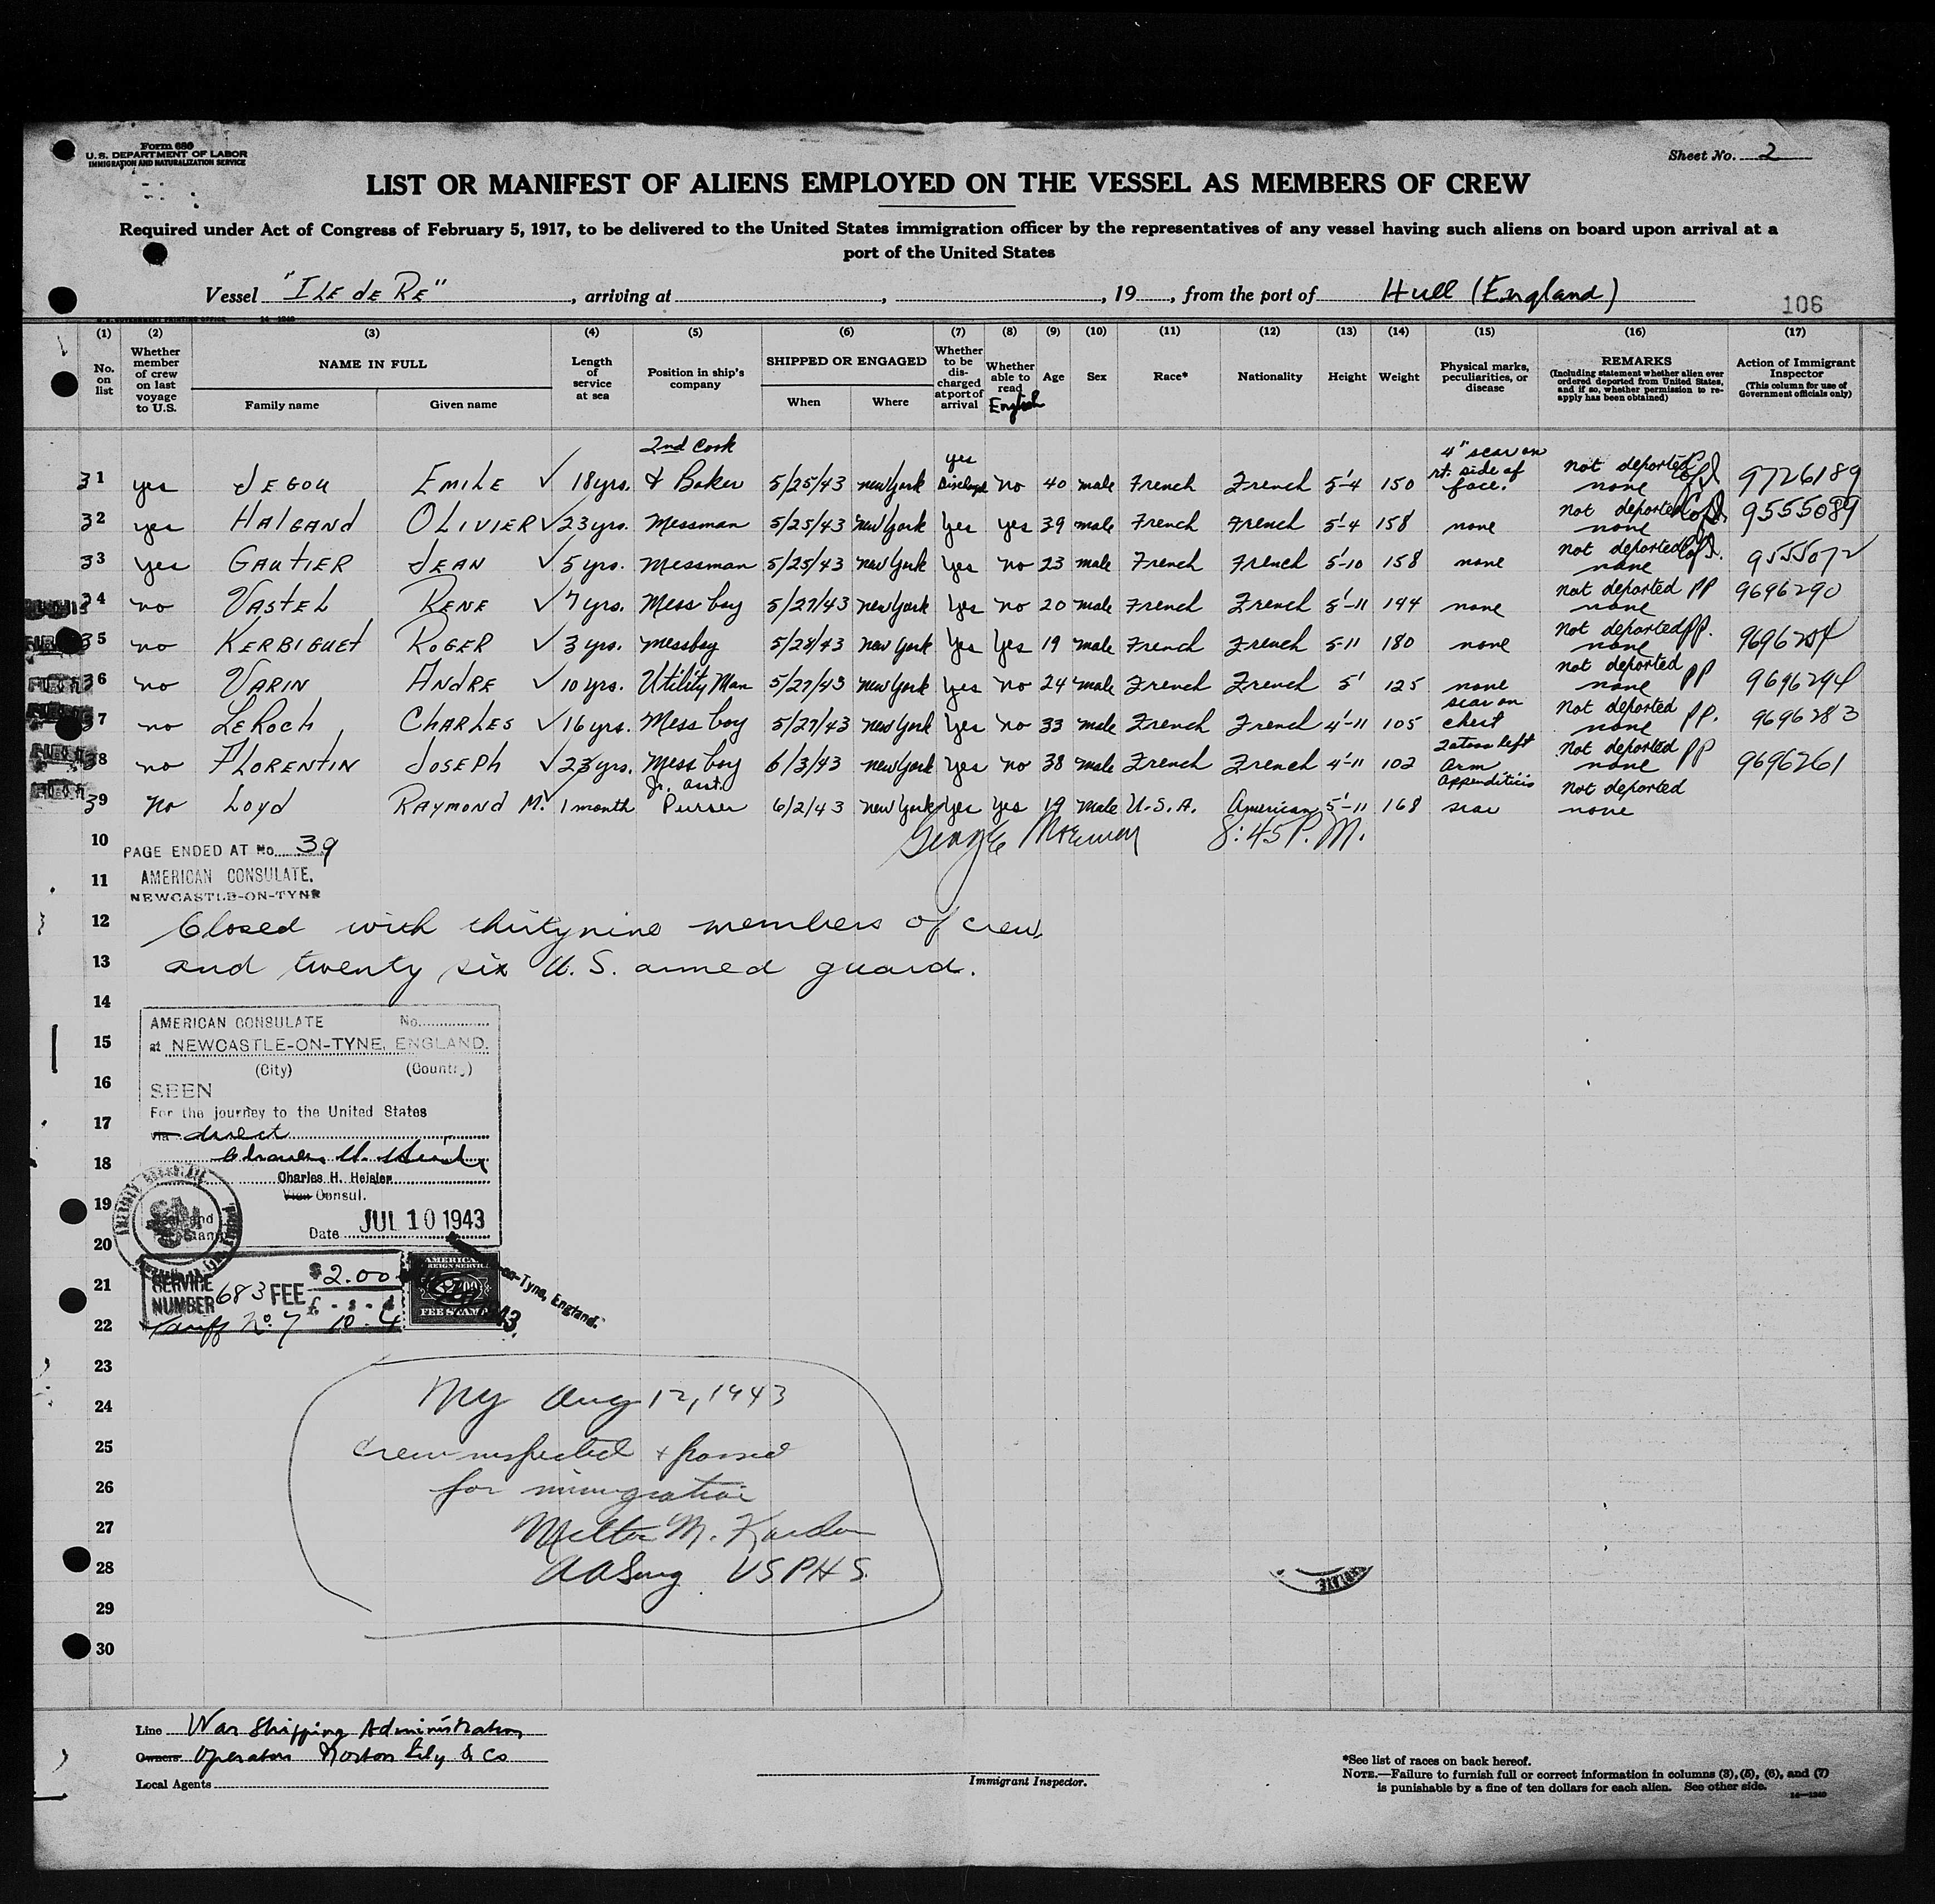 Form 680
U. S. DEPARTMENT OF LABOR
IMMIGRATION AND NATURALIZATION SERVICE
Sheet No. 2
LIST OR MANIFEST OF ALIENS EMPLOYED ON THE VESSEL AS MEMBERS OF CREW
Required under Act of Congress of February 5, 1917, to be delivered to the United States immigration officer by the representatives of any vessel having such aliens on board upon arrival at a
port of the United States
Vessel "ILE de RE", arriving at , , 19 , from the port of Hull (England)
106
(1) (2) (3) (4) (5) (6) (7) (8) (9) (10) (11) (12) (13) (14) (15) (16) (17)
No. on list
Whether member of crew on last voyage to U.S.
NAME IN FULL
Family name
Given name
Length of service at sea
Position in ship's company
SHIPPED OR ENGAGED
When
Where
Whether to be discharged at port of arrival
Whether able to read English
Age
Sex
Race*
Nationality
Height
Weight
Physical marks, peculiarities, or disease
REMARKS
(Including statement whether alien ever ordered deported from United States, and if so, whether permission to reapply has been obtained)
Action of Immigrant Inspector
(This column for use of Government officials only)
31 yes JEGOU EMILE ✓ 18 yrs. 2nd Cook & Baker 5/25/43 new York yes no 40 male French French 5'-4 150 4" scar on rt. side of face. not deported none 9726189
32 yes HALGAND OLIVIER ✓ 23 yrs. Messman 5/25/43 new York Yes yes 39 male French French 5'-4 158 none not deported none 9555089
33 yes GAUTIER JEAN ✓ 5 yrs. Messman 5/25/43 new York Yes no 23 male French French 5'-10 158 none not deported none 9555072
34 no VASTEL RENE ✓ 7 yrs. Mess boy 5/27/43 new York Yes no 20 male French French 5'-11 144 none not deported PP none 9696290
35 no KERBIGUET ROGER ✓ 3 yrs. messboy 5/28/43 new York Yes Yes 19 male French French 5-11 180 none not deported PP. none
36 no VARIN ANDRE ✓ 10 yrs. Utility Man 5/27/43 new York Yes no 24 male French French 5' 125 none not deported PP none 9696294
37 no LeRoch CHARLES ✓ 16 yrs. Mess boy 5/27/43 new York Yes no 33 male French French 4'-11 105 scar on chest not deported PP. none 9696283
38 no FLORENTIN JOSEPH ✓ 23 yrs. Mess boy 6/3/43 new York Yes no 38 male French French 4'-11 102 left arm not deported PP none 9696261
39 no Loyd RAYMOND M. ✓ 1 month Jr. asst. Purser 6/2/43 new York Yes Yes 19 male U.S.A. American 5'-11 168 appendicitis scar not deported none
10 PAGE ENDED AT No. 39 George 8:45 P.M.
11 AMERICAN CONSULATE,
NEWCASTLE-ON-TYNE
12 Closed with thirty nine members of crew
13 and twenty six U. S. armed guard.
14
AMERICAN CONSULATE No.
15 at NEWCASTLE-ON-TYNE, ENGLAND.
(City) (Country)
16 SEEN
For the journey to the United States
17 via direct
18 Charles H. Heisler
Vice Consul.
19
20 Date JUL 10 1943
21 SERVICE NUMBER 683 FEE $2.00 £ - s - d
AMERICAN FOREIGN SERVICE FEE STAMP
-on-Tyne, England.
22 Tariff No. 7 10 - 4
23
24 NY Aug 12, 1943
25 Crew inspected & passed
26 for immigration
27 Milton M.
28 AASurg USPHS.
29
30
Line War Shipping Administration
Owners Operators Norton Lily & Co
Local Agents
Immigrant Inspector.
*See list of races on back hereof.
NOTE.—Failure to furnish full or correct information in columns (3), (5), (6), and (7)
is punishable by a fine of ten dollars for each alien. See other side.